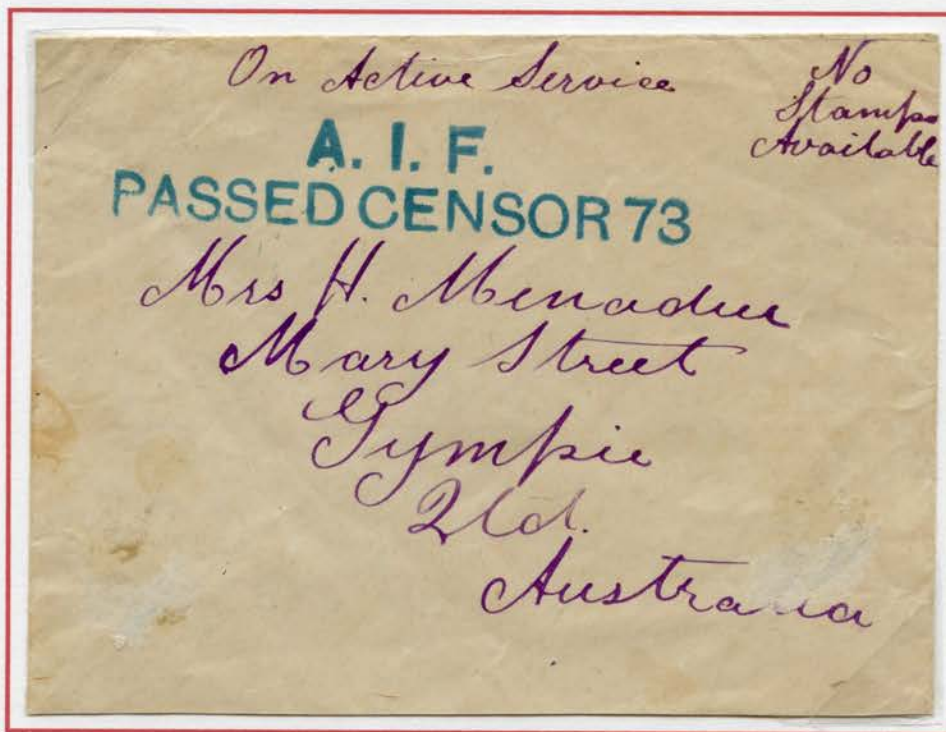 On Active Service
No
Stamps
Available
A. I. F.
PASSED CENSOR 73
Mrs H. Menadue
Mary Street
Gympie
Qld.
Australia